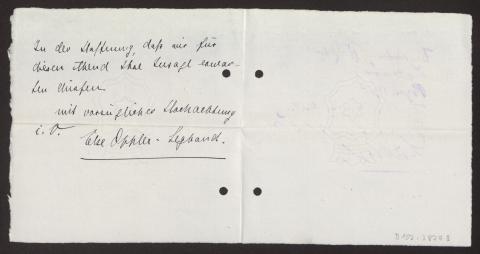 In der Hoffnung, daß wir für
diesen Abend Ihre Zusage erwar-
ten dürfen
mit vorzüglicher Hochachtung
i. V.
Else Oppler-Legband.